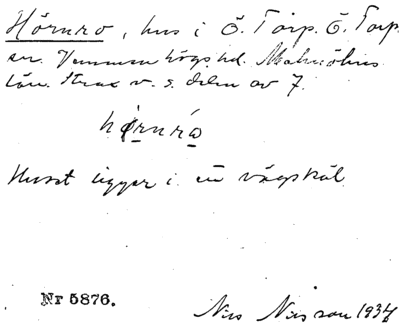 Hörnro, hus i Ö. Torp. Ö. Torp
sn. Vemmenhögs hd. Malmöhus
län. Strax v. s. delen av 7.
hörnró
Huset ligger i en vägskäl.
Nr 5876.
Nils Nilsson 1934